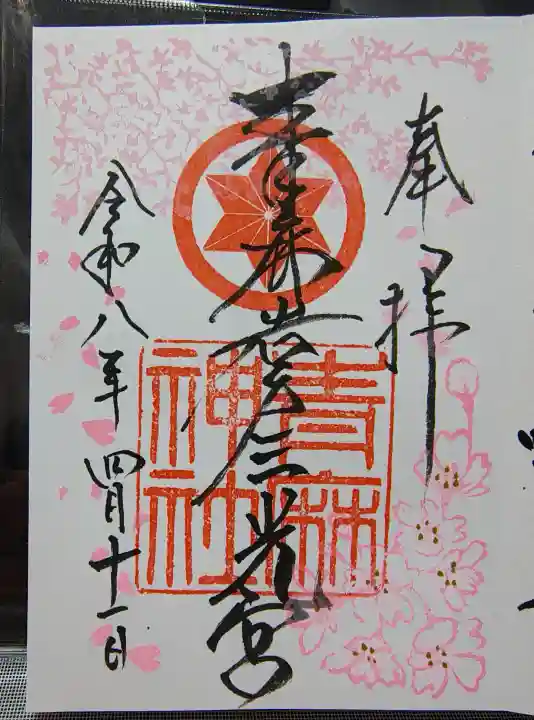 奉拝
青麻岩戸三光宮
青麻
神社
令和八年四月十一日